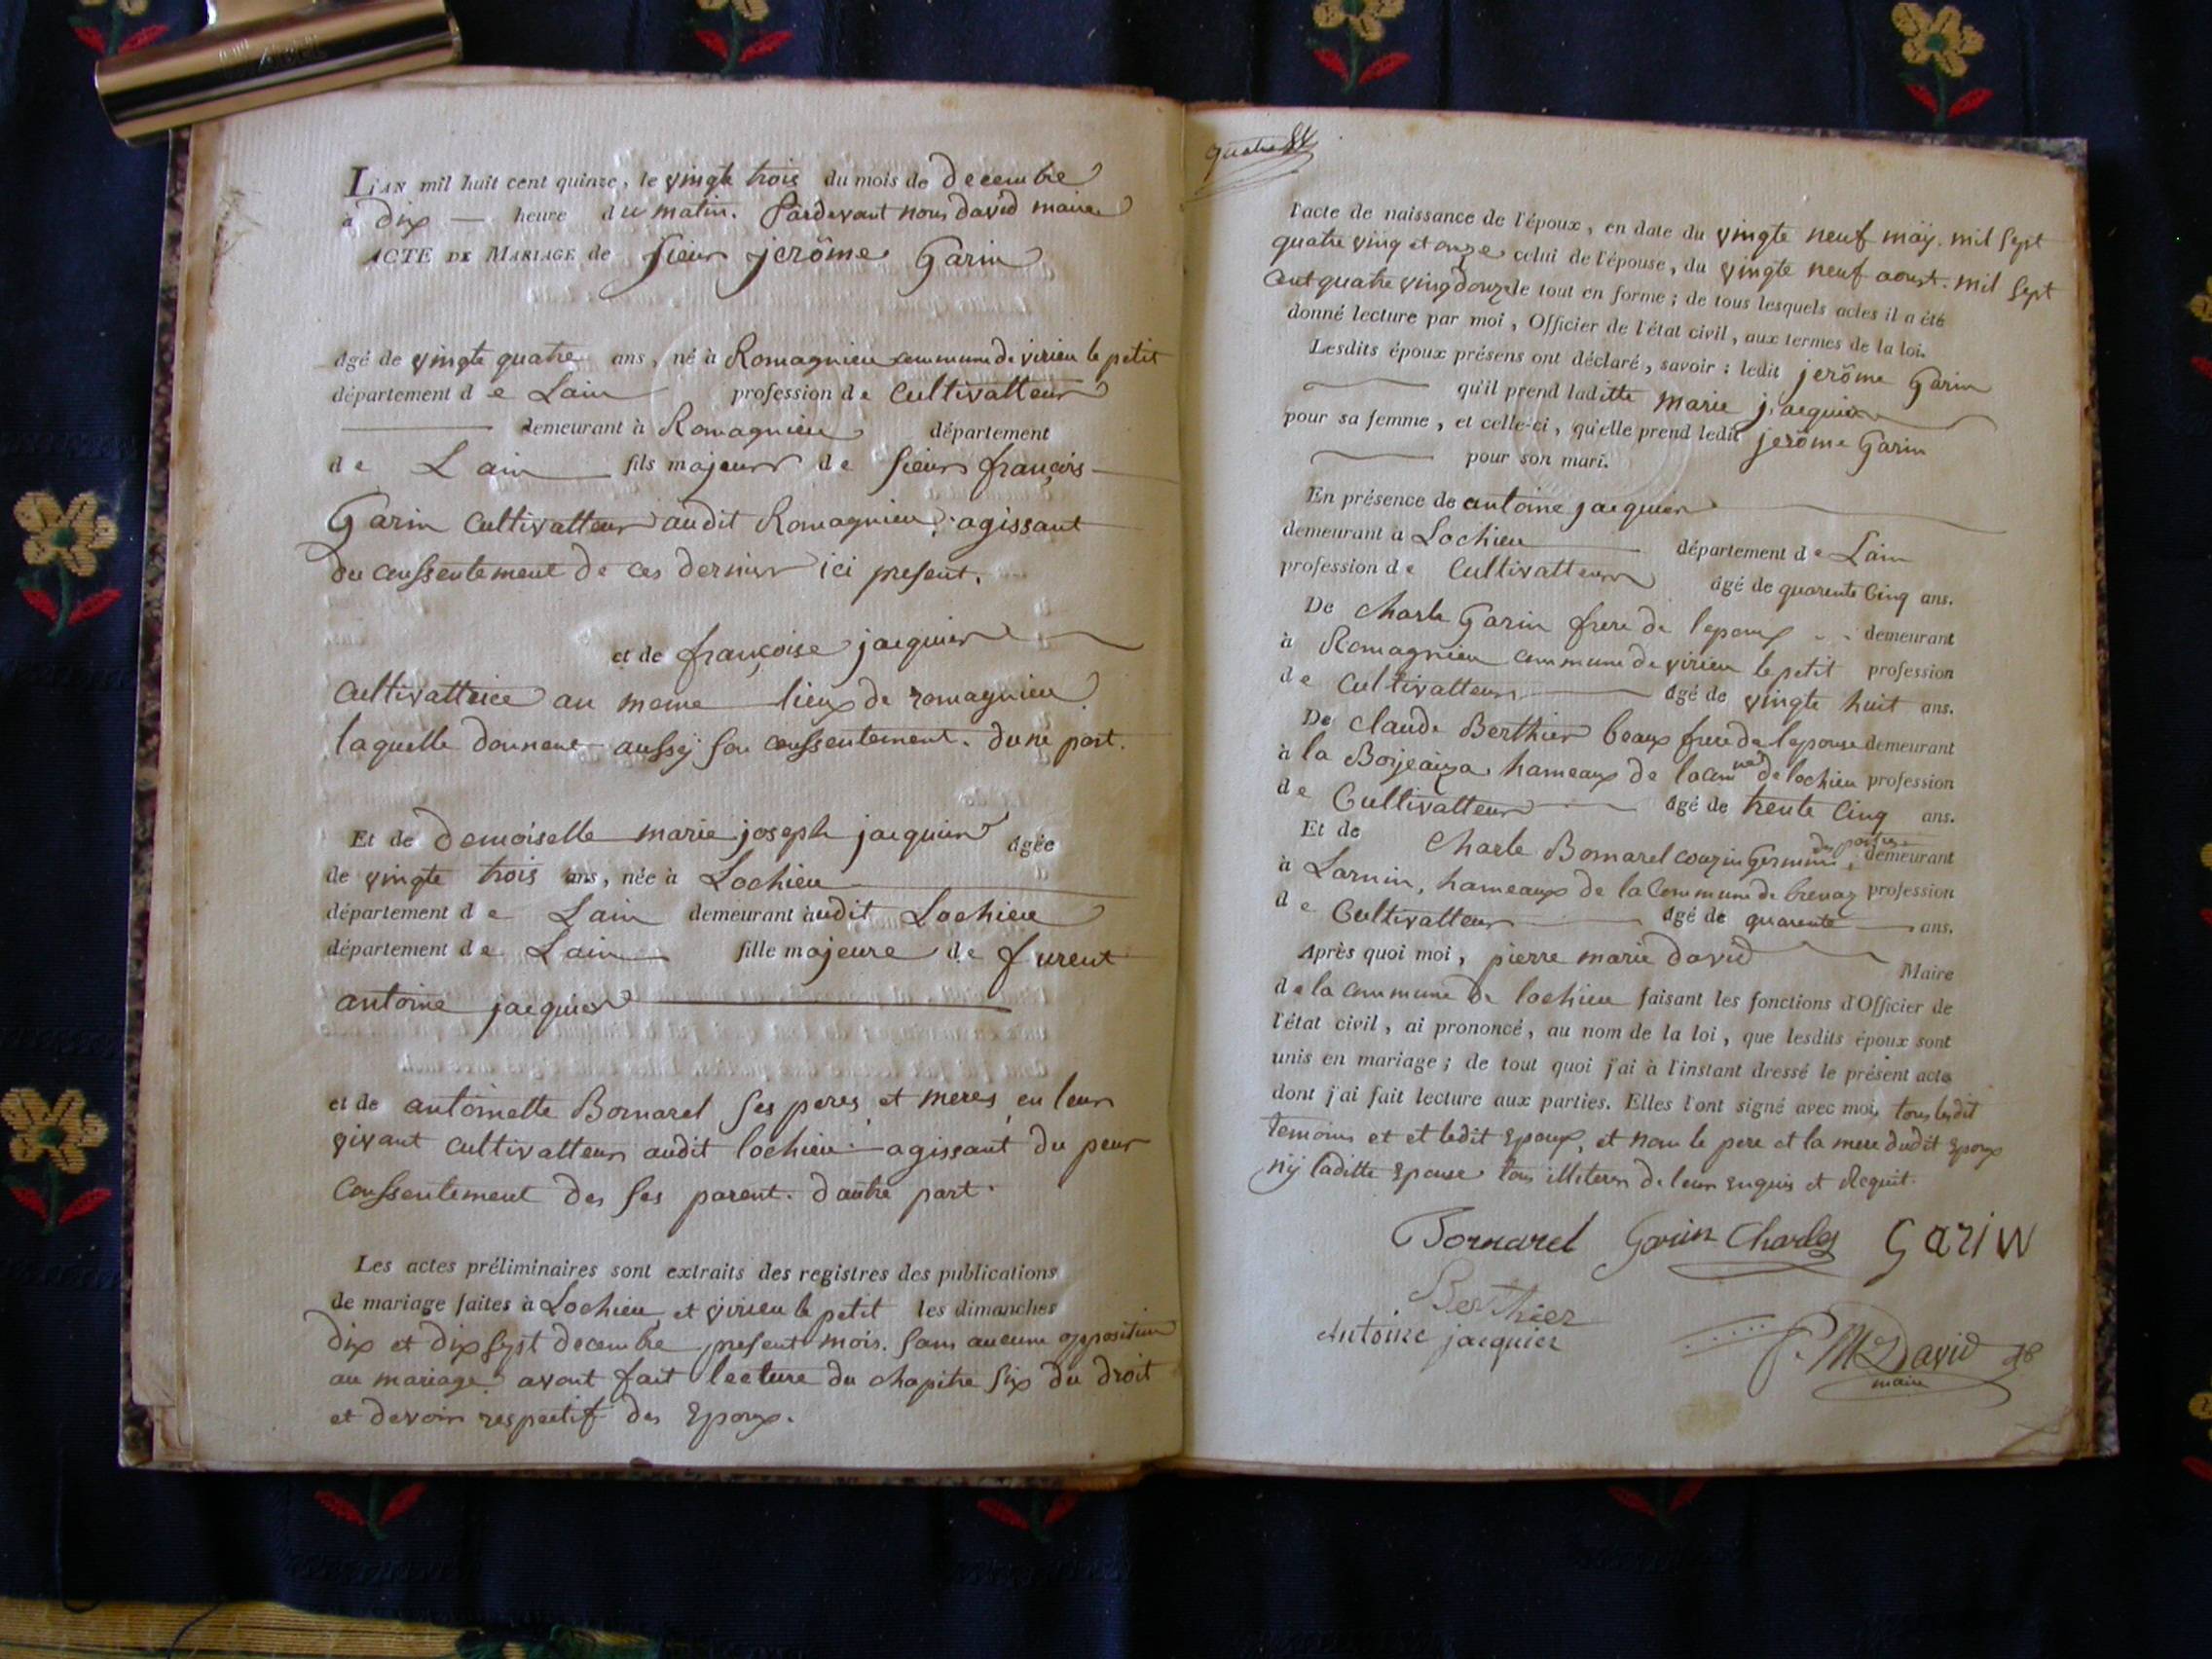 L'an mil huit cent quinze, le vingte trois du mois de decembre
à dix heure du matin. Pardevant nous david maire
ACTE DE MARIAGE de sieur jerôme Garin
âgé de vingte quatre ans, né à Romagnieu commune de virieu le petit
département de Lain profession de Cultivatteur
demeurant à Romagnieu département
de Lain fils majeurs de sieur françois
Garin Cultivatteur audit Romagnieu, agissant
du conssentement de ces dernier ici present.
et de françoise jacquier
Cultivattrice au meme lieux de romagnieu
laquelle donnent aussÿ son conssentement. dune part.
Et de demoiselle marie joseph jacquier âgée
de vingte trois ans, née à Lochieu
département de Lain demeurant audit Lochieu
département de Lain fille majeure de furent
antoine jacquier
et de antoinette Bornarel ses peres et meres en leur
vivant cultivatteur audit lochieu agissant du peur
Conssentement des ses parent. dautre part.
Les actes préliminaires sont extraits des registres des publications
de mariage faites à Lochieu et virieu le petit les dimanches
dix et dix sept decembre present mois. sans aucune opposition
au mariage. avont fait lecture du chapitre six du droit
et devoir respectif des Epoux.
quatre 84
l'acte de naissance de l'époux, en date du vingte neuf maÿ. mil sept
quatre ving et onze celui de l'épouse, du vingte neuf aoust. mil sept
cent quatre ving douze le tout en forme ; de tous lesquels actes il a été
donné lecture par moi, Officier de l'état civil, aux termes de la loi.
Lesdits époux présens ont déclaré, savoir : ledit jerôme Garin
qu'il prend laditte marie jacquier
pour sa femme, et celle-ci, qu'elle prend ledit jerôme Garin
pour son mari.
En présence de antoine jacquier
demeurant à Lochieu département de Lain
profession de Cultivatteur âgé de quarente Cinq ans.
De Charle Garin frere de lepoux demeurant
à Romagnieu commune de virieu le petit profession
de Cultivatteur âgé de vingte huit ans.
De Claude Berthier beaux frere de lepouse demeurant
à la hameaux de la comne de lochieu profession
de Cultivatteur âgé de trente Cinq ans.
Et de Charle Bornarel couzin Germain demeurant
à Larnin, hameaux de la Commune de brenaz profession
de Cultivatteur âgé de quarente ans.
Après quoi moi, pierre marie david Maire
de la commune de lochieu faisant les fonctions d'Officier de
l'état civil, ai prononcé, au nom de la loi, que lesdits époux sont
unis en mariage ; de tout quoi j'ai à l'instant dressé le présent acte
dont j'ai fait lecture aux parties. Elles l'ont signé avec moi, tous lesdit
temoins et et ledit Epoux, et non le pere et la mere dudit Epoux
nÿ laditte Epouse tous illiterer de leur enquis et Requit.
Bornarel Garin Charles GariN
Berthier
Antoine jacquier
P. M David
maire